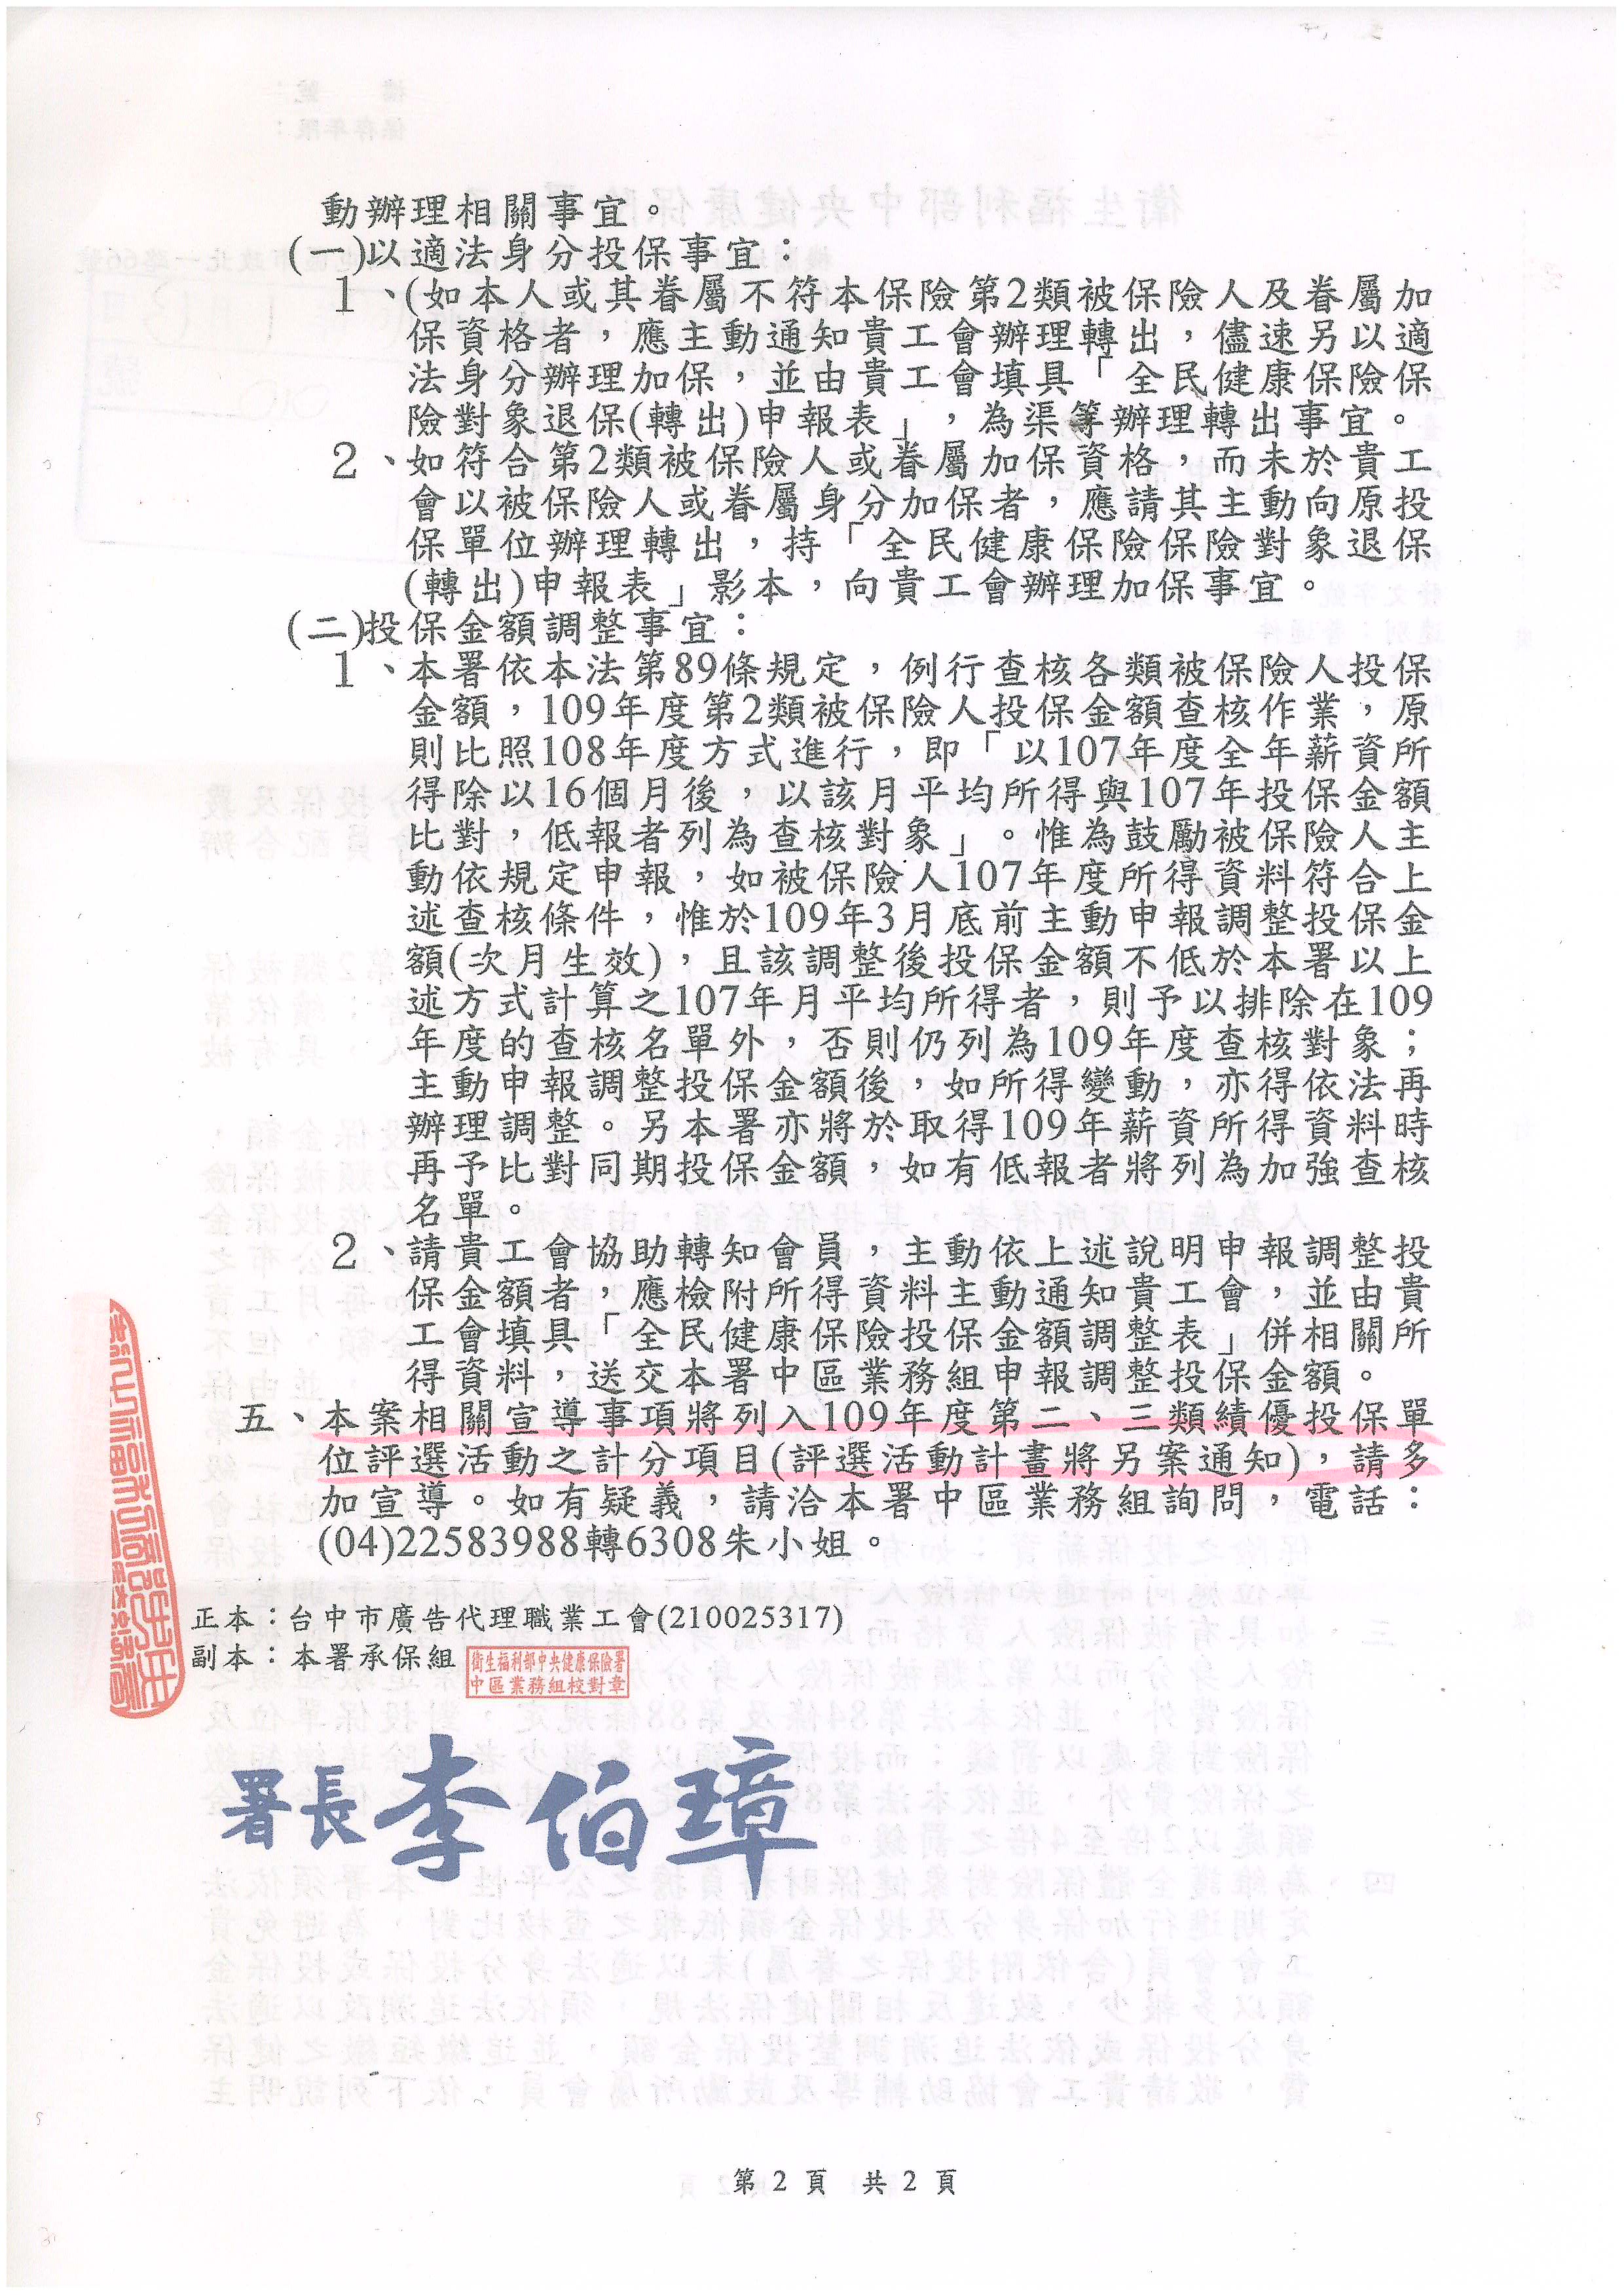 動辦理相關事宜。
(一)以適法身分投保事宜：
1、(如本人或其眷屬不符本保險第2類被保險人及眷屬加
保資格者，應主動通知貴工會辦理轉出，儘速另以適
法身分辦理加保，並由貴工會填具「全民健康保險保
險對象退保(轉出)申報表」，為渠等辦理轉出事宜。
2、如符合第2類被保險人或眷屬加保資格，而未於貴工
會以被保險人或眷屬身分加保者，應請其主動向原投
保單位辦理轉出，持「全民健康保險保險對象退保
(轉出)申報表」影本，向貴工會辦理加保事宜。
(二)投保金額調整事宜：
1、本署依本法第89條規定，例行查核各類被保險人投保
金額，109年度第2類被保險人投保金額查核作業，原
則比照108年度方式進行，即「以107年度全年薪資所
得除以16個月後，以該月平均所得與107年投保金額
比對，低報者列為查核對象」。惟為鼓勵被保險人主
動依規定申報，如被保險人107年度所得資料符合上
述查核條件，惟於109年3月底前主動申報調整投保金
額(次月生效)，且該調整後投保金額不低於本署以上
述方式計算之107年月平均所得者，則予以排除在109
年度的查核名單外，否則仍列為109年度查核對象；
主動申報調整投保金額後，如所得變動，亦得依法再
辦理調整。另本署亦將於取得109年薪資所得資料時
再予比對同期投保金額，如有低報者將列為加強查核
名單。
2、請貴工會協助轉知會員，主動依上述說明申報調整投
保金額者，應檢附所得資料主動通知貴工會，並由貴
工會填具「全民健康保險投保金額調整表」併相關所
得資料，送交本署中區業務組申報調整投保金額。
五、本案相關宣導事項將列入109年度第二、三類績優投保單
位評選活動之計分項目(評選活動計畫將另案通知)，請多
加宣導。如有疑義，請洽本署中區業務組詢問，電話：
(04)22583988轉6308朱小姐。
正本：台中市廣告代理職業工會(210025317)
副本：本署承保組
衛生福利部中央健康保險署
中區業務組校對章
署長 李伯璋
第 2 頁 共 2 頁